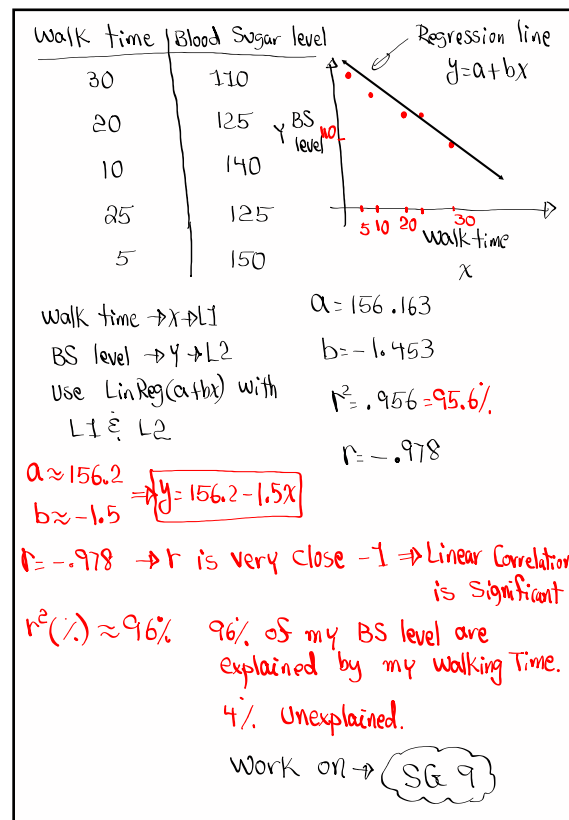 Walk time Blood Sugar level
30 110
20 125
10 140
25 125
5 150
Regression line
y=a+bx
Y BS level
110
5 10 20 30
Walk time
x
Walk time → X → L1
BS level → Y → L2
Use LinReg(a+bx) with
L1 & L2
a = 156.163
b = -1.453
r² = .956 = 95.6%
r = -.978
a ≈ 156.2
b ≈ -1.5
⇒ y = 156.2 - 1.5x
r = -.978 → r is very close -1 ⇒ Linear Correlation
is Significant
r²(%) ≈ 96% 96% of my BS level are
explained by my Walking Time.
4% Unexplained.
Work on → SG 9